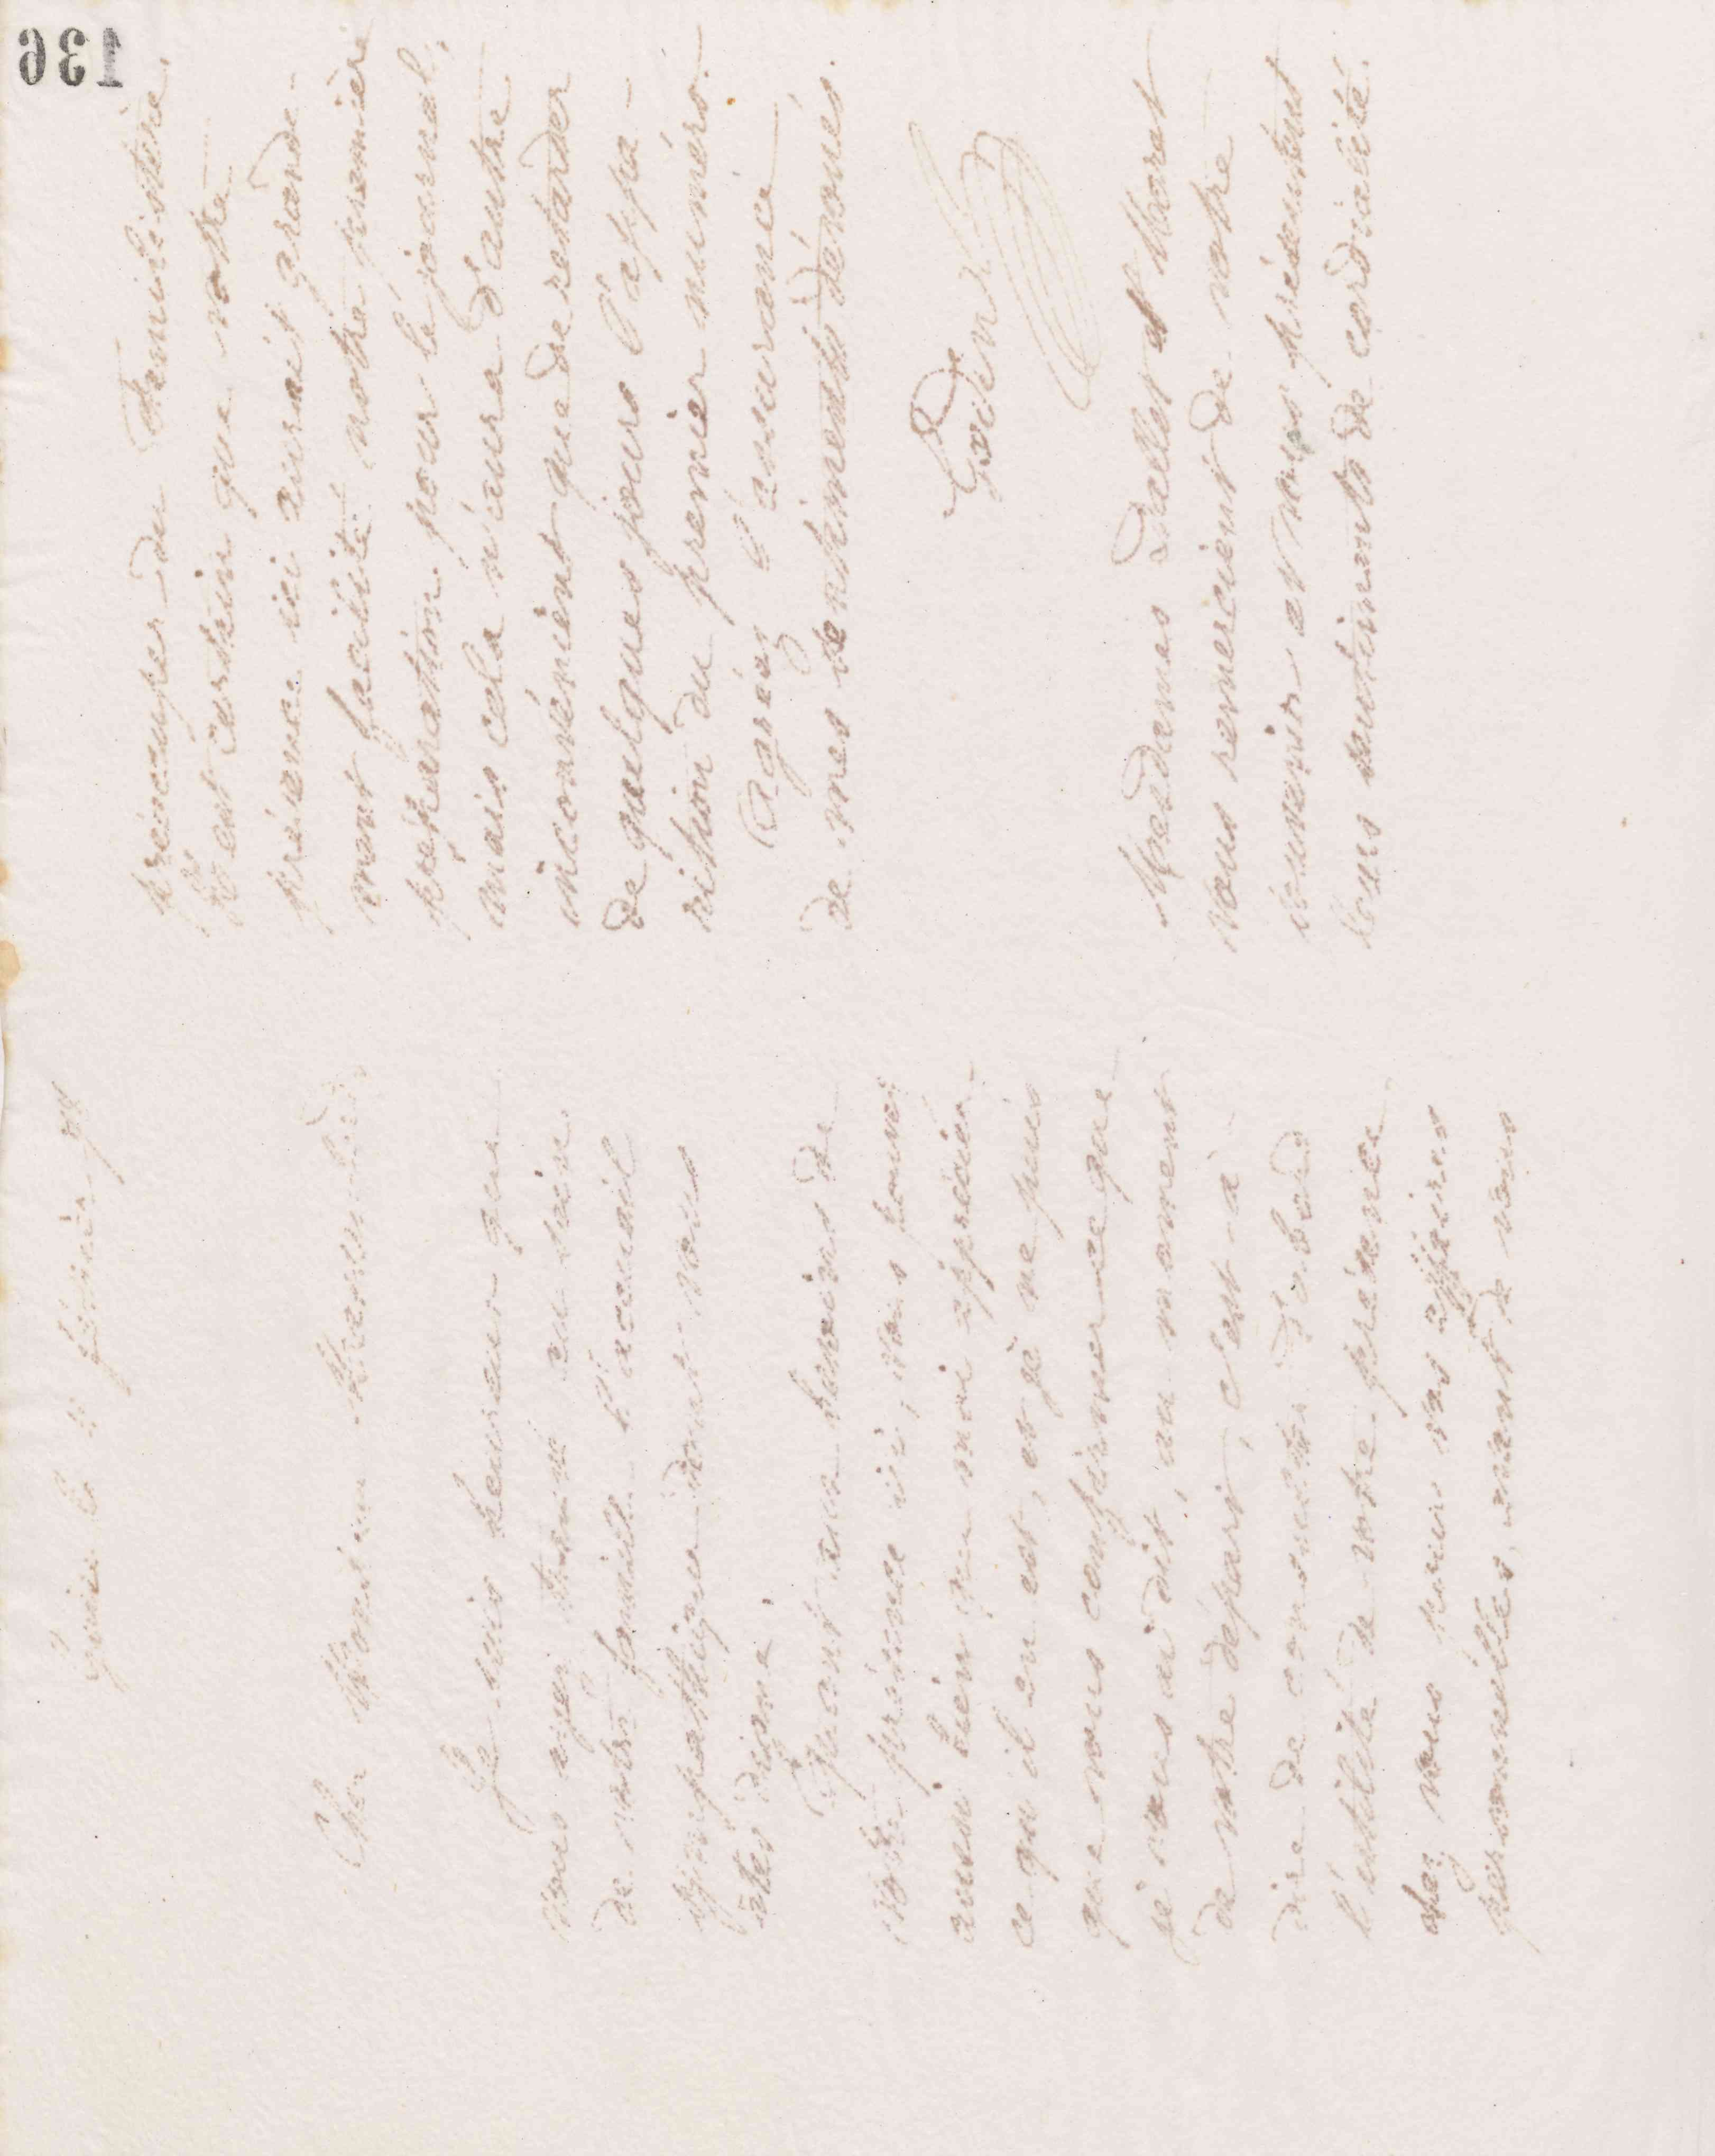 136
Guise le 2 février 78
Cher Monsieur
Je suis heureux que
vous ayez trouvé au sein
de votre famille l'accueil
sympathique dont vous
êtes digne.
Quant aux besoins de
votre présence ici, vous pouvez
aussi bien que moi apprécier
ce qu'il en est, et je ne puis
que vous confirmer ce que
je vous ai dit, au moment
de votre départ, c'est-à-
dire de consulter d'abord
l'utilité de votre présence
chez vous pour vos affaires
personnelles, avant de vous
préoccuper du Familistère.
Il est certain que votre
présence ici aurait grande-
ment facilité notre première
préparation pour le journal,
mais cela n'aura d'autre
inconvénient que de retarder
de quelques jours l'appa-
rition du premier numéro.
Agréez l'assurance
de mes sentiments dévoués
Godin
Mesdames Dallet et Moret
vous remercient de votre
souvenir et vous présentent
leurs sentiments de cordialité.